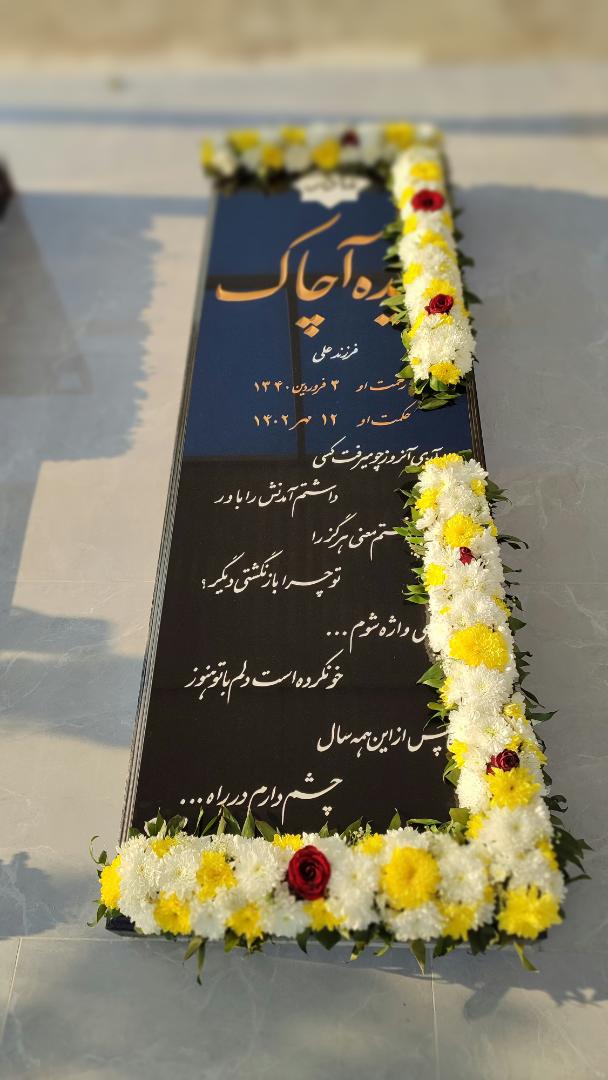 آچاک
فرزند علی
۳ فروردین ۱۳۴۰
حکمت او ۱۲ مهر ۱۴۰۲
آنروز چو میرفت کسی
داشتم آمدنش را باور
معنی هرگز را
تو چرا بازنگشتی دیگر؟
واژه شوم...
خو نکرده است دلم با تو هنوز
پس از این همه سال
چشم دارم در راه...